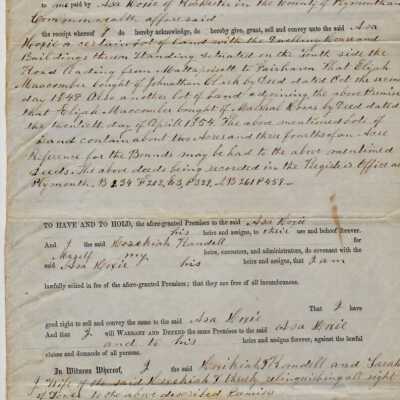 to me paid by Asa Hoxie of Rochester in the County of Plymouth
Commonwealth affore said
the receipt whereof I do hereby acknowledge, do hereby give, grant, sell and convey unto the said Asa
Hoxie a certain Lot of Land with the Dwelling House and
Buildings thereon Standing Setuated on the South side the
Road leading from Mattapoisett to Fairhaven that Elijah
Muacomber bought of Johnathan Church by Deed dated Oct the second
day 1848 Also another lot of Land adjoining the above Premises
that Elijah Muacomber bought of by Deed dated
the twentieth day of Aprill 1854 The above mentioned lots of
Land contain about two Acres and three fourths of an Acre
Reference for the Bounds may be had to the above mentioned
Deeds. The above deeds being recorded in the Register Office at
Plymouth. B 234 P 212, 63, P 322, B 261 P 451
TO HAVE AND TO HOLD, the afore-granted Premises to the said Asa Hoxie
his heirs and assigns, to their use and behoof forever.
And I the said Hezekiah Randell for
Myself my heirs, executors, and administrators, do covenant with the
said Asa Hoxie his heirs and assigns, that I am
lawfully seized in fee of the afore-granted Premises; that they are free of all incumbrances.
That I have
good right to sell and convey the same to the said Asa Hoxie
And that I will WARRANT AND DEFEND the same Premises to the said Asa Hoxie
and to his heirs and assigns forever, against the lawful
claims and demands of all persons.
In Witness Whereof, I the said Hezikiah Randell and Sarah
J Wife of the said Hezekiah hereby relinquishing all right
of Dower to the above described Premises